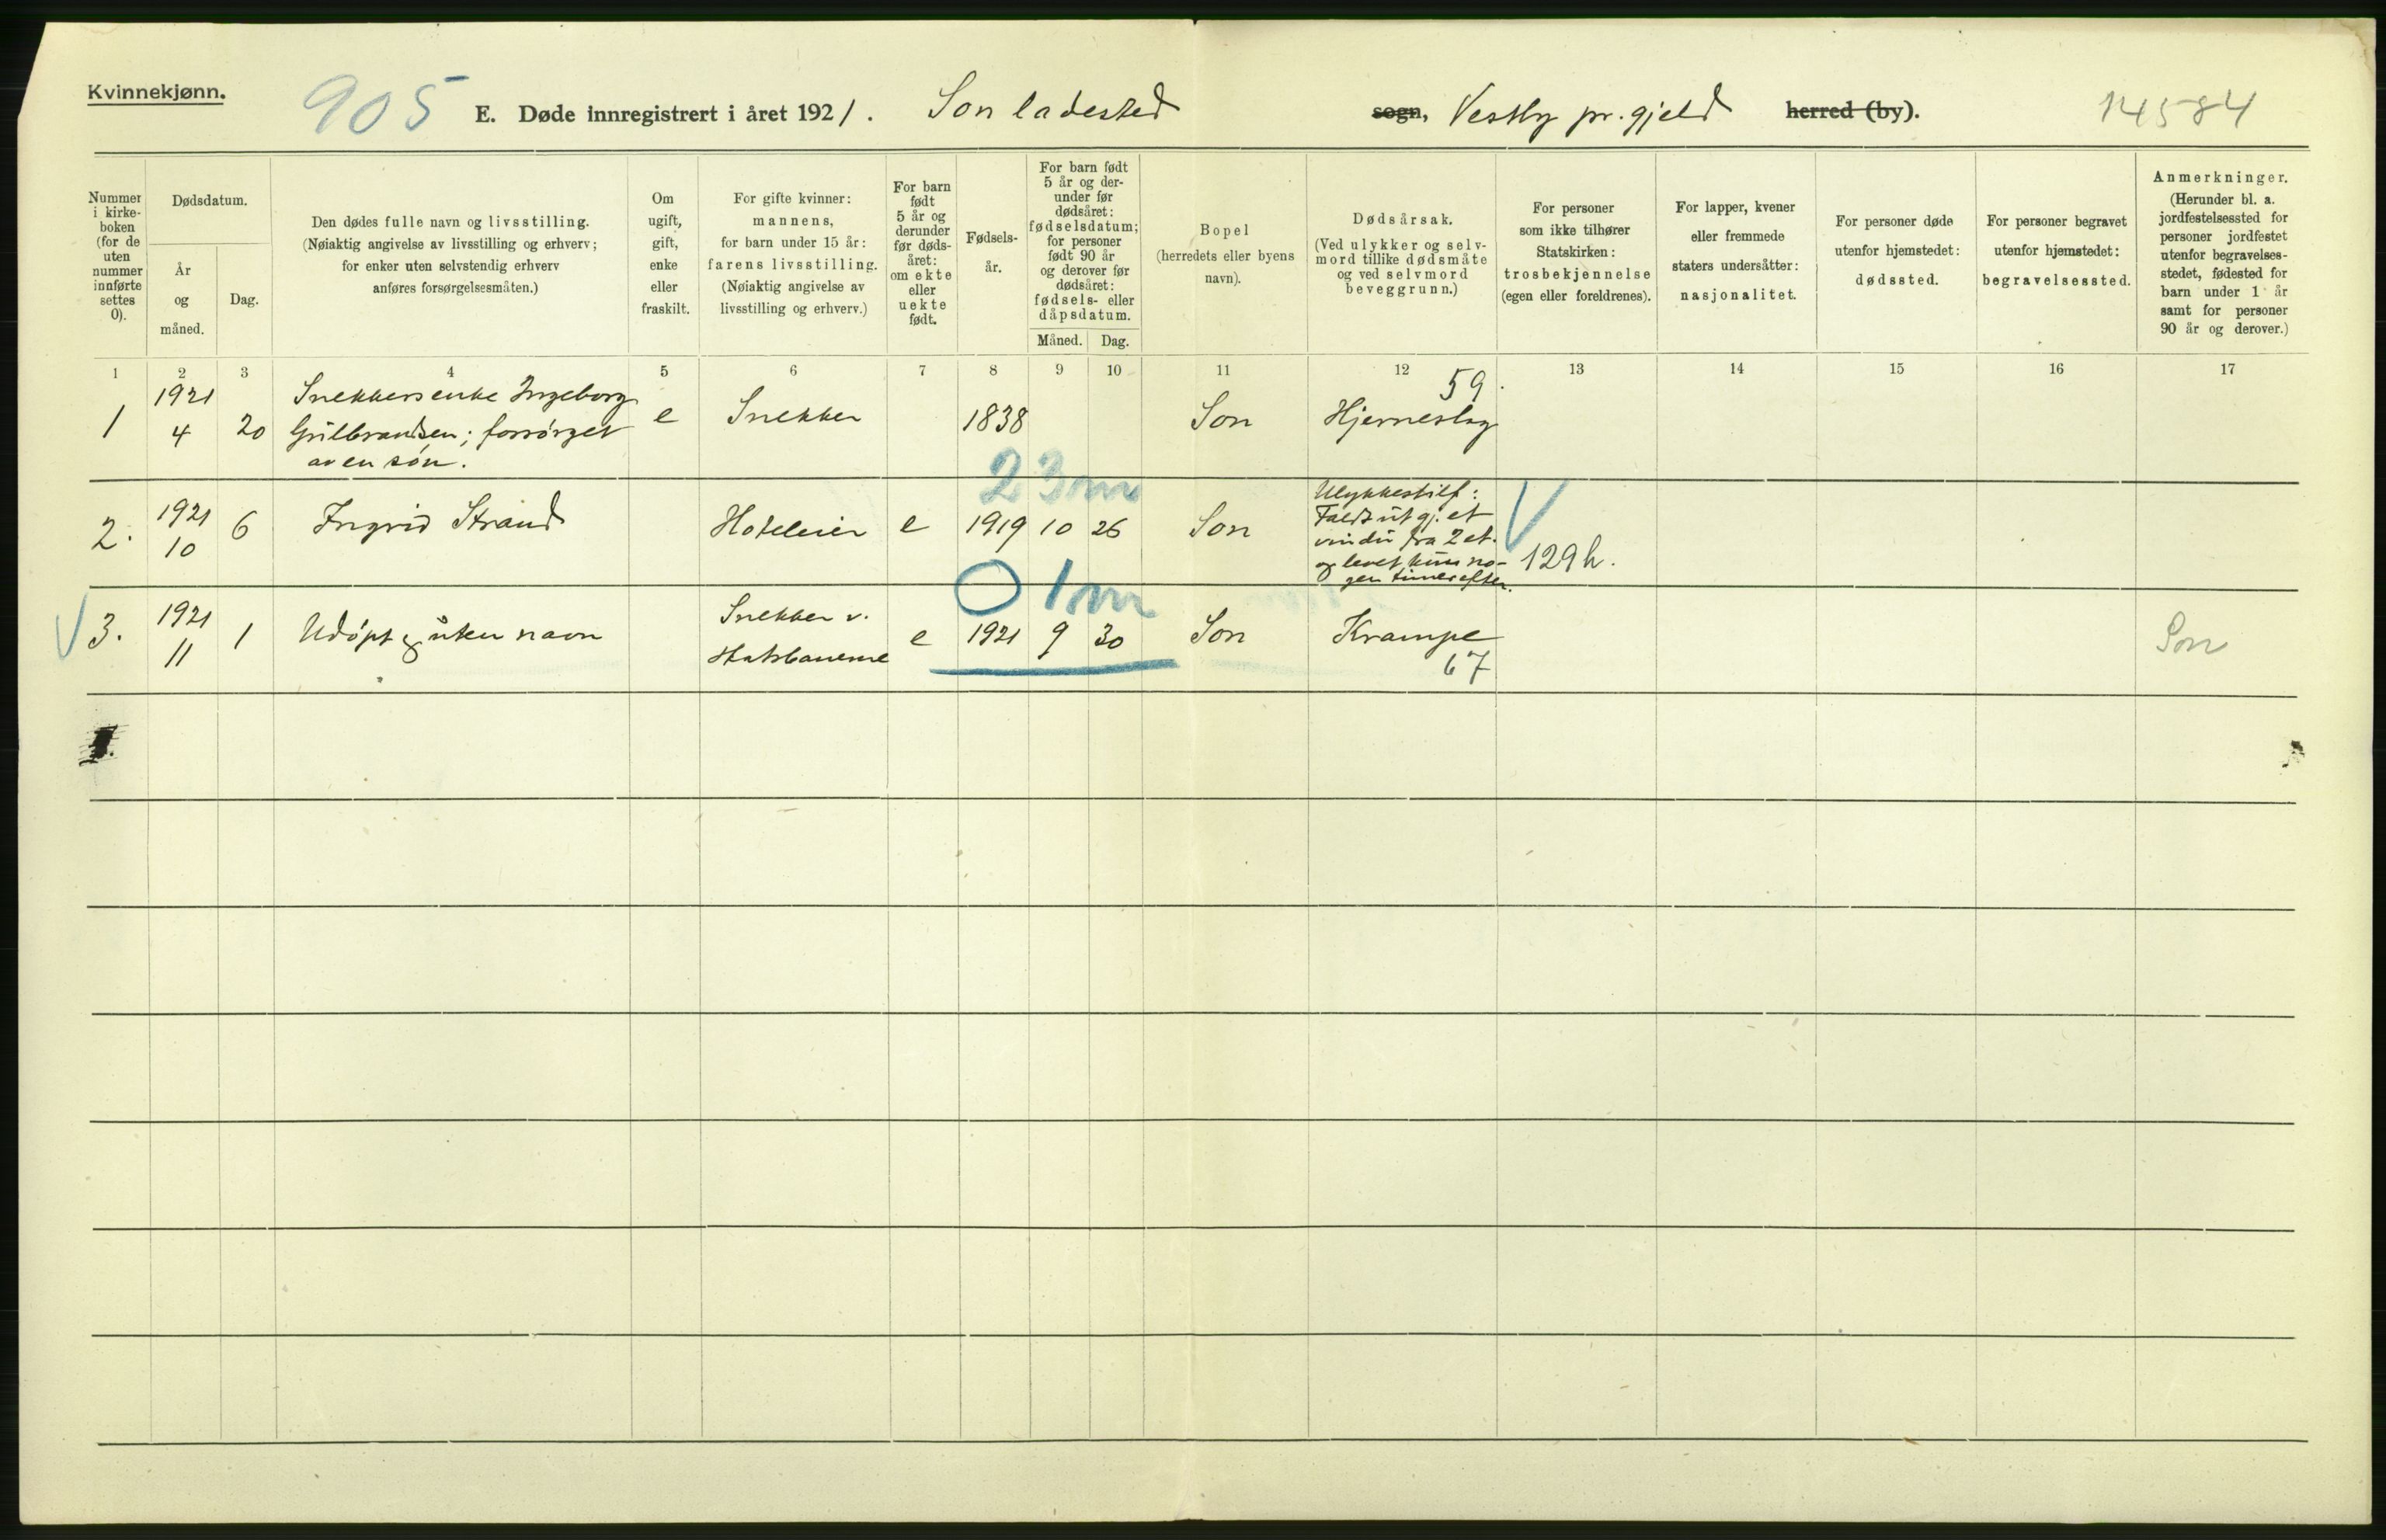 Kvinnekjønn.
905 E. Døde innregistrert i året 1921. Son ladested sogn, Vestby pr.gjeld herred (by). 14584
Nummer
i kirke-
boken
(for de
uten
nummer
innførte
settes
0).
Dødsdatum.
År
og
måned.
Dag.
Den dødes fulle navn og livsstilling.
(Nøiaktig angivelse av livsstilling og erhverv;
for enker uten selvstendig erhverv
anføres forsørgelsesmåten.)
Om
ugift,
gift,
enke
eller
fraskilt.
For gifte kvinner:
mannens,
for barn under 15 år:
farens livsstilling.
(Nøiaktig angivelse av
livsstilling og erhverv.)
For barn
født
5 år og
derunder
før døds-
året:
om ekte
eller
uekte
født.
Fødsels-
år.
For barn født
5 år og der-
under før
dødsåret:
fødselsdatum;
for personer
født 90 år
og derover før
dødsåret:
fødsels- eller
dåpsdatum.
Måned. Dag.
Bopel
(herredets eller byens
navn).
Dødsårsak.
(Ved ulykker og selv-
mord tillike dødsmåte
og ved selvmord
beveggrunn.)
For personer
som ikke tilhører
Statskirken:
trosbekjennelse
(egen eller foreldrenes).
For lapper, kvener
eller fremmede
staters undersåtter:
nasjonalitet.
For personer døde
utenfor hjemstedet:
dødssted.
For personer begravet
utenfor hjemstedet:
begravelsessted.
Anmerkninger.
(Herunder bl. a.
jordfestelsessted for
personer jordfestet
utenfor begravelses-
stedet, fødested for
barn under 1 år
samt for personer
90 år og derover.)
1 2 3 4 5 6 7 8 9 10 11 12 13 14 15 16 17
1
1921
4
20
Snekkersenke Ingeborg
Gulbrandsen; forsørget
av en søn.
e
Snekker
1838
Son
59.
Hjerneslag
2.
1921
10
6
Ingrid Strand
Hoteleier
e
23 m
1919 10 26
Son
Ulykkestilf:
Faldt ut gj. et
vindu fra 2 et.
og levet kun no-
gen timer efter.
129h.
3.
1921
11
1
Udøpt & uten navn
Snekker v.
Statsbanerne
e
0 1m
1921 9 30
Son
Krampe
67
Son